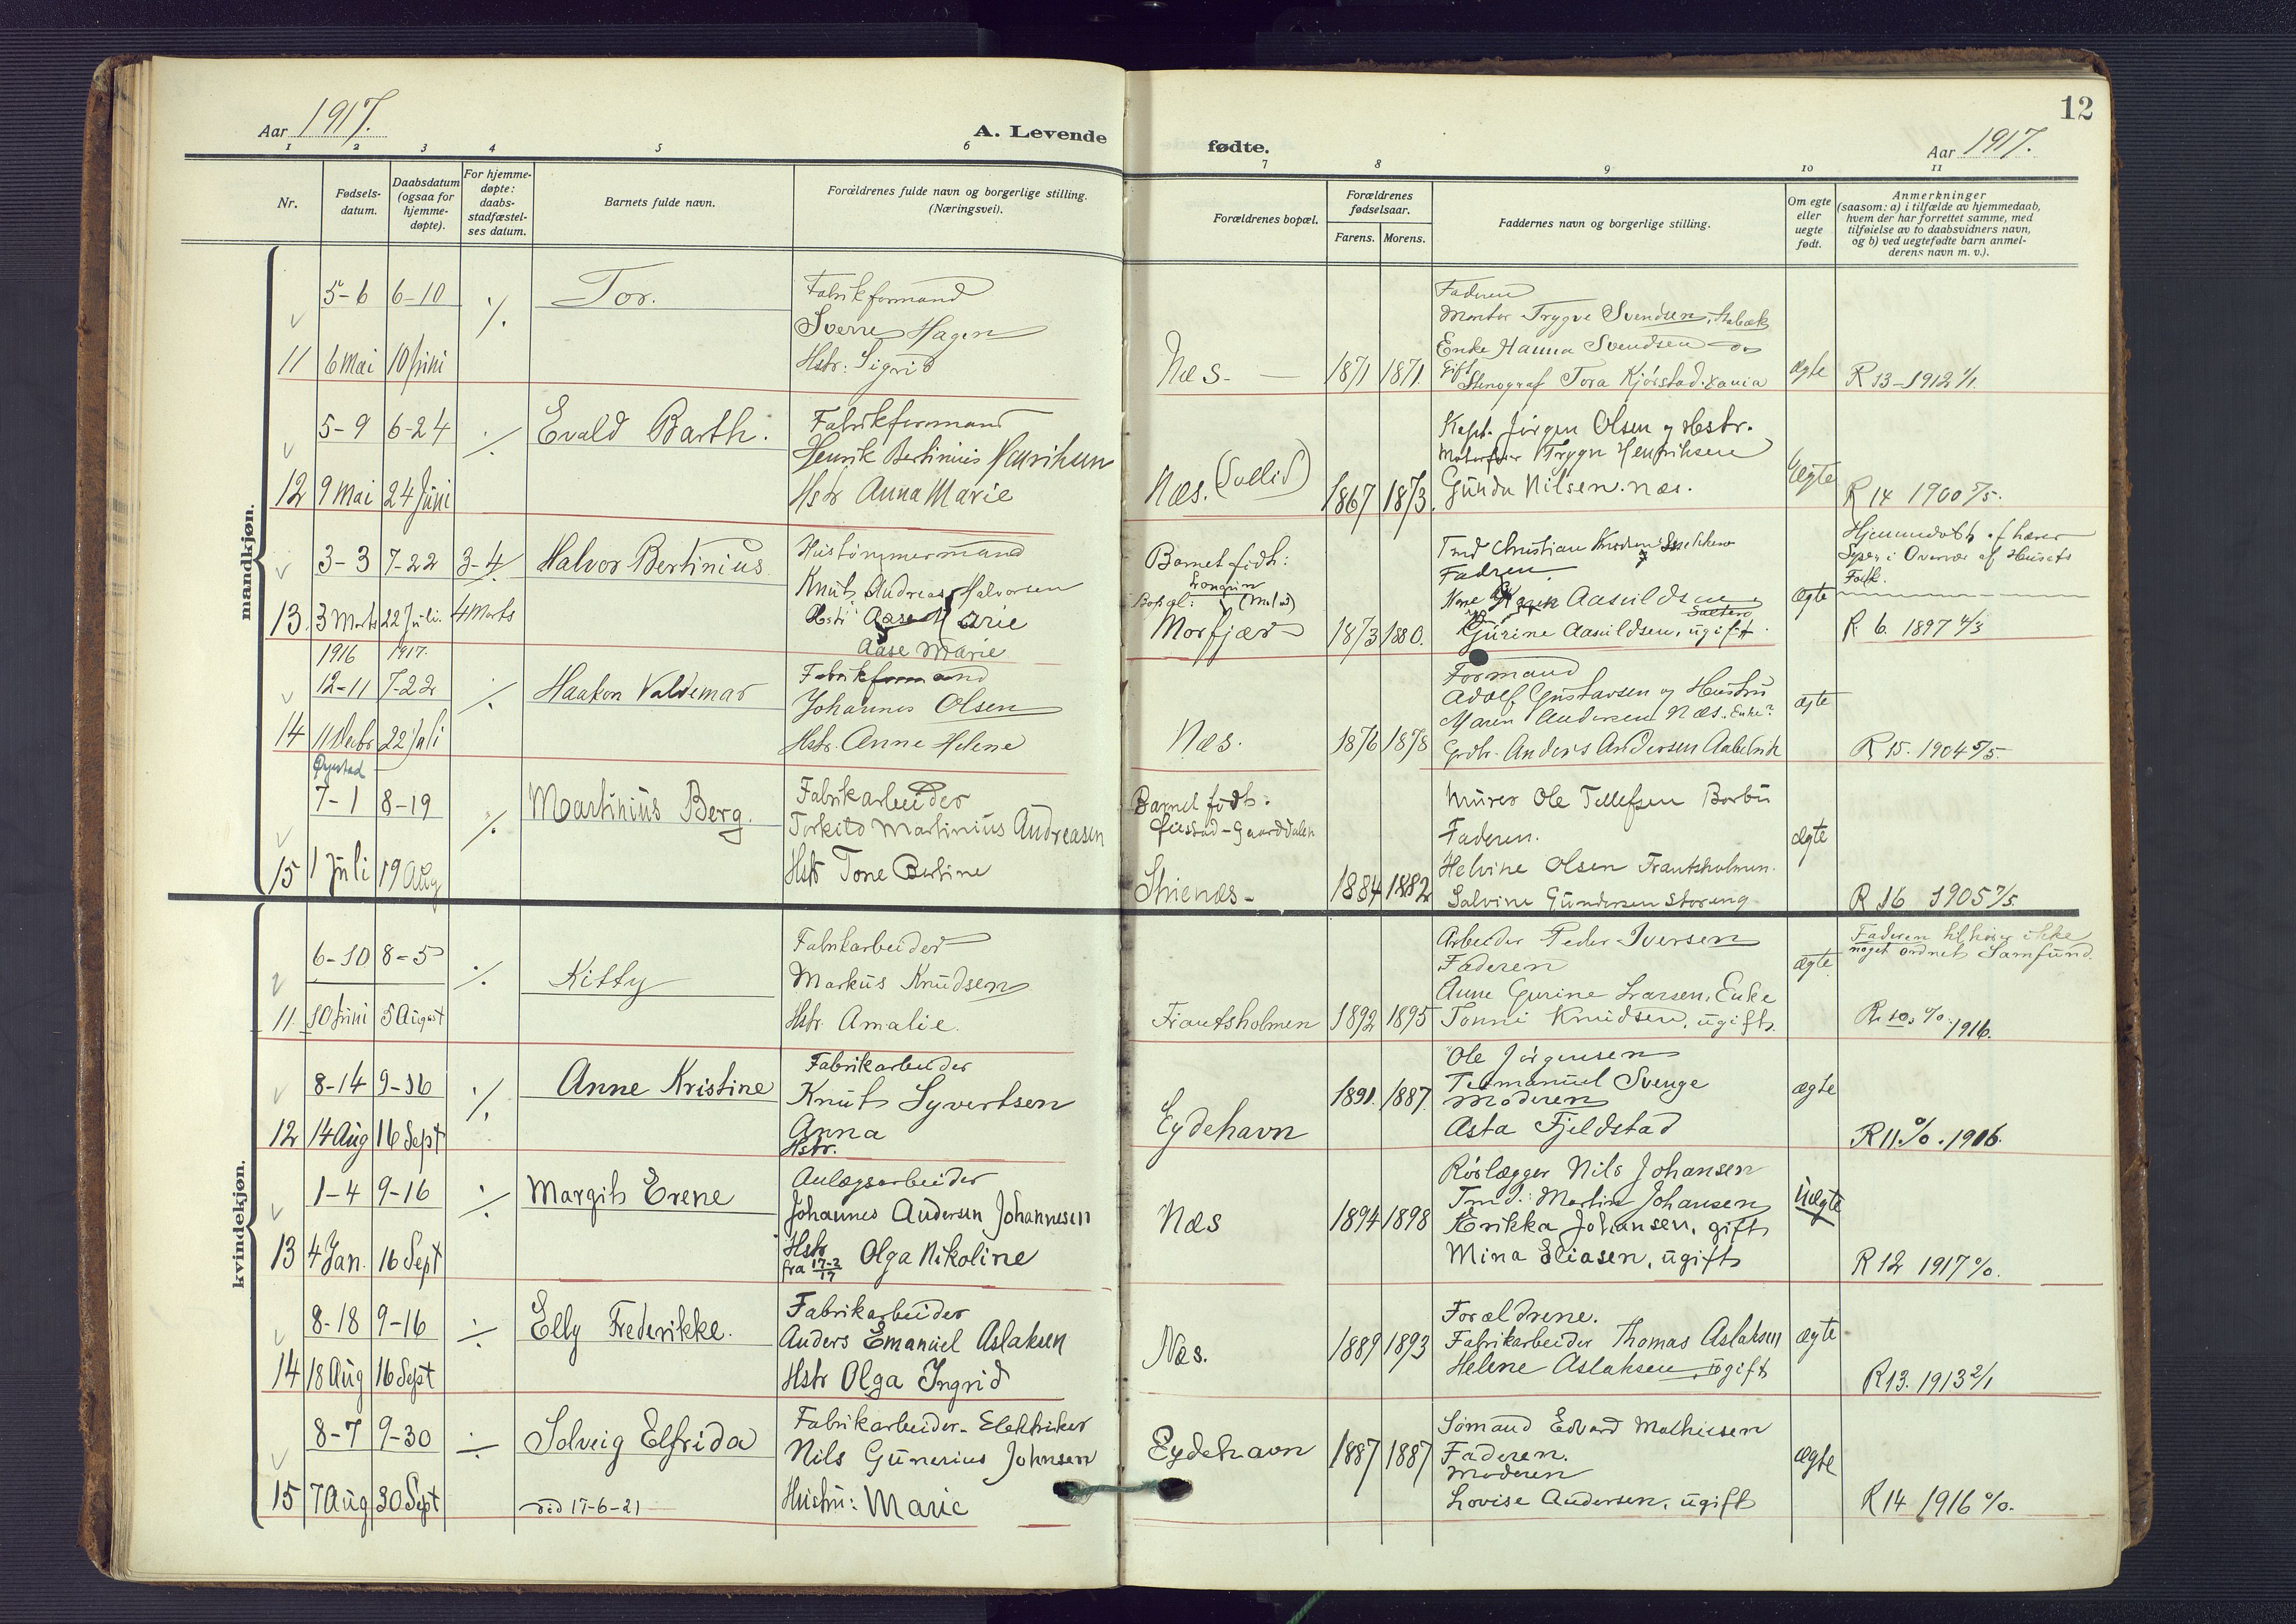 12
Aar 1917.
A. Levende
fødte.
Aar 1917.
1 2 3 4 5 6 7 8 9 10 11
Nr.
Fødsels-
datum.
Daabsdatum
(ogsaa for
hjemme-
døpte).
For hjemme-
døpte:
daabs-
stadfæstel-
ses datum.
Barnets fulde navn.
Forældrenes fulde navn og borgerlige stilling.
(Næringsvei).
Forældrenes bopæl.
Forældrenes
fødselsaar.
Farens. Morens.
Faddernes navn og borgerlige stilling.
Om egte
eller
uegte
født.
Anmerkninger
(saasom: a) i tilfælde av hjemmedaab,
hvem der har forrettet samme, med
tilføielse av to daabsvidners navn,
og b) ved uegtefødte barn anmel-
derens navn m. v.).
mandkjøn.
5-6 6-10 ./. Tor.
11 6 Mai 10 Juni
Fabrikformand
Sverre Hagen
Hstr: Sigrid
Næs. 1871 1871.
Faderen
Trygve Svendsen,
Enke Hanna Svendsen do
Gift
Stenograf Tora Kjørstad. Xania
ægte
R 13-1912 1/1.
5-9 6-24 ./. Evald Barth.
12 9 Mai 24 Juni
Fabrikformand
Henrik Bertinius
Hstr Anna Marie
Næs. (Sollid) 1867 1873.
Kapt. Jørgen Olsen og Hstr.
Trygve Henriksen
Gunda Nilsen. Næs.
Ægte
R 14 1900
3-3 7-22 3-4 Halvor Bertinius
13. 3 Marts 22 Juli. 4 Marts
Hustømmermand
Knut Andreas Halvorsen
Hstr Aase Marie
Aase Marie
Barnet født:
Bopæl:
Morfjær 1873 1880.
Christian
Faderen.
Karen Aasuldsen
Gurine Aasuldsen, ugift.
ægte
Hjemmedøbt af
i Overvær af Husets
Folk.
R. 6. 1897 4/3
1916 1917.
12-11 7-22 ./. Haakon Valdemar
14 11 Decbr 22 Juli
Fabrikformand
Johannes Olsen
Hstr. Anne Helene
Næs. 1876 1878
Formand
Adolf Gustavsen og Hustru
Maren Andersen Næs. Enke?
Anders Andersen
ægte
R 15. 1904
Øyestad
7-1 8-19 ./. Martinius Berg.
15 1 Juli 19 Aug
Fabrikarbeider
Torkild Martinius Andreasen
Hstr Tone Bertine
Barnet født:
Strenæs 1884 1882
Murer Ole Tellefsen Barbu
Faderen.
Helvine Olsen Frantsholmen.
Salvine Gundersen Storeng
ægte
R 16 1905
kvindekjøn.
6-10 8-5 ./. Kitty
11. 10 Juni 5 August
Fabrikarbeider
Markus Knudsen
Hstr. Amalie.
Frantsholmen 1892 1895
Arbeider Peder Iversen
Faderen
Anne Gurine Larsen, Enke
Tonni Knudsen, ugift.
ægte
Faderen tilhører ikke
noget ordnet Samfund.
R. 10. 1916.
8-14 9-16 ./. Anne Kristine
12 14 Aug 16 Sept
Fabrikarbeider
Knut Syvertsen
Anna
Hstr.
Eydehavn 1891. 1887.
Ole Jørgensen
Svenge
Moderen
Asta Fjeldstad
ægte
R 11. %. 1916.
1-4 9-16 ./. Margit Erene
13 4 Jan. 16 Sept
Anlægsarbeider
Johannes Andersen Johannesen
Hstr
fra 17-2/17 Olga Nikoline
Næs 1894 1898
Rørlægger Nils Johansen
Tmd.: Martin Johansen
Erikka Johansen, gift
Mina Eliasen, ugift
Uægte
R 12 1917 %.
8-18 9-16 ./. Elly Frederikke.
14 18 Aug 16 Sept
Fabrikarbeider
Anders Emanuel Aslaksen
Hstr Olga Ingrid
Næs. 1889 1893
Forældrene.
Fabrikarbeider Thomas Aslaksen
Helene Aslaksen, ugift
ægte
R 13. 1913 2/1
8-7 9-30 ./. Solveig Elfrida
15 7 Aug 30 Sept død 17-6-21
Fabrikarbeider - Elektriker
Nils Gunerius Johnsen
Hustru: Marie
Eydehavn 1887 1887
Sømand Edvard Mathiesen
Faderen.
Moderen
Lovise Andersen, ugift
ægte
R 14 1916 %.